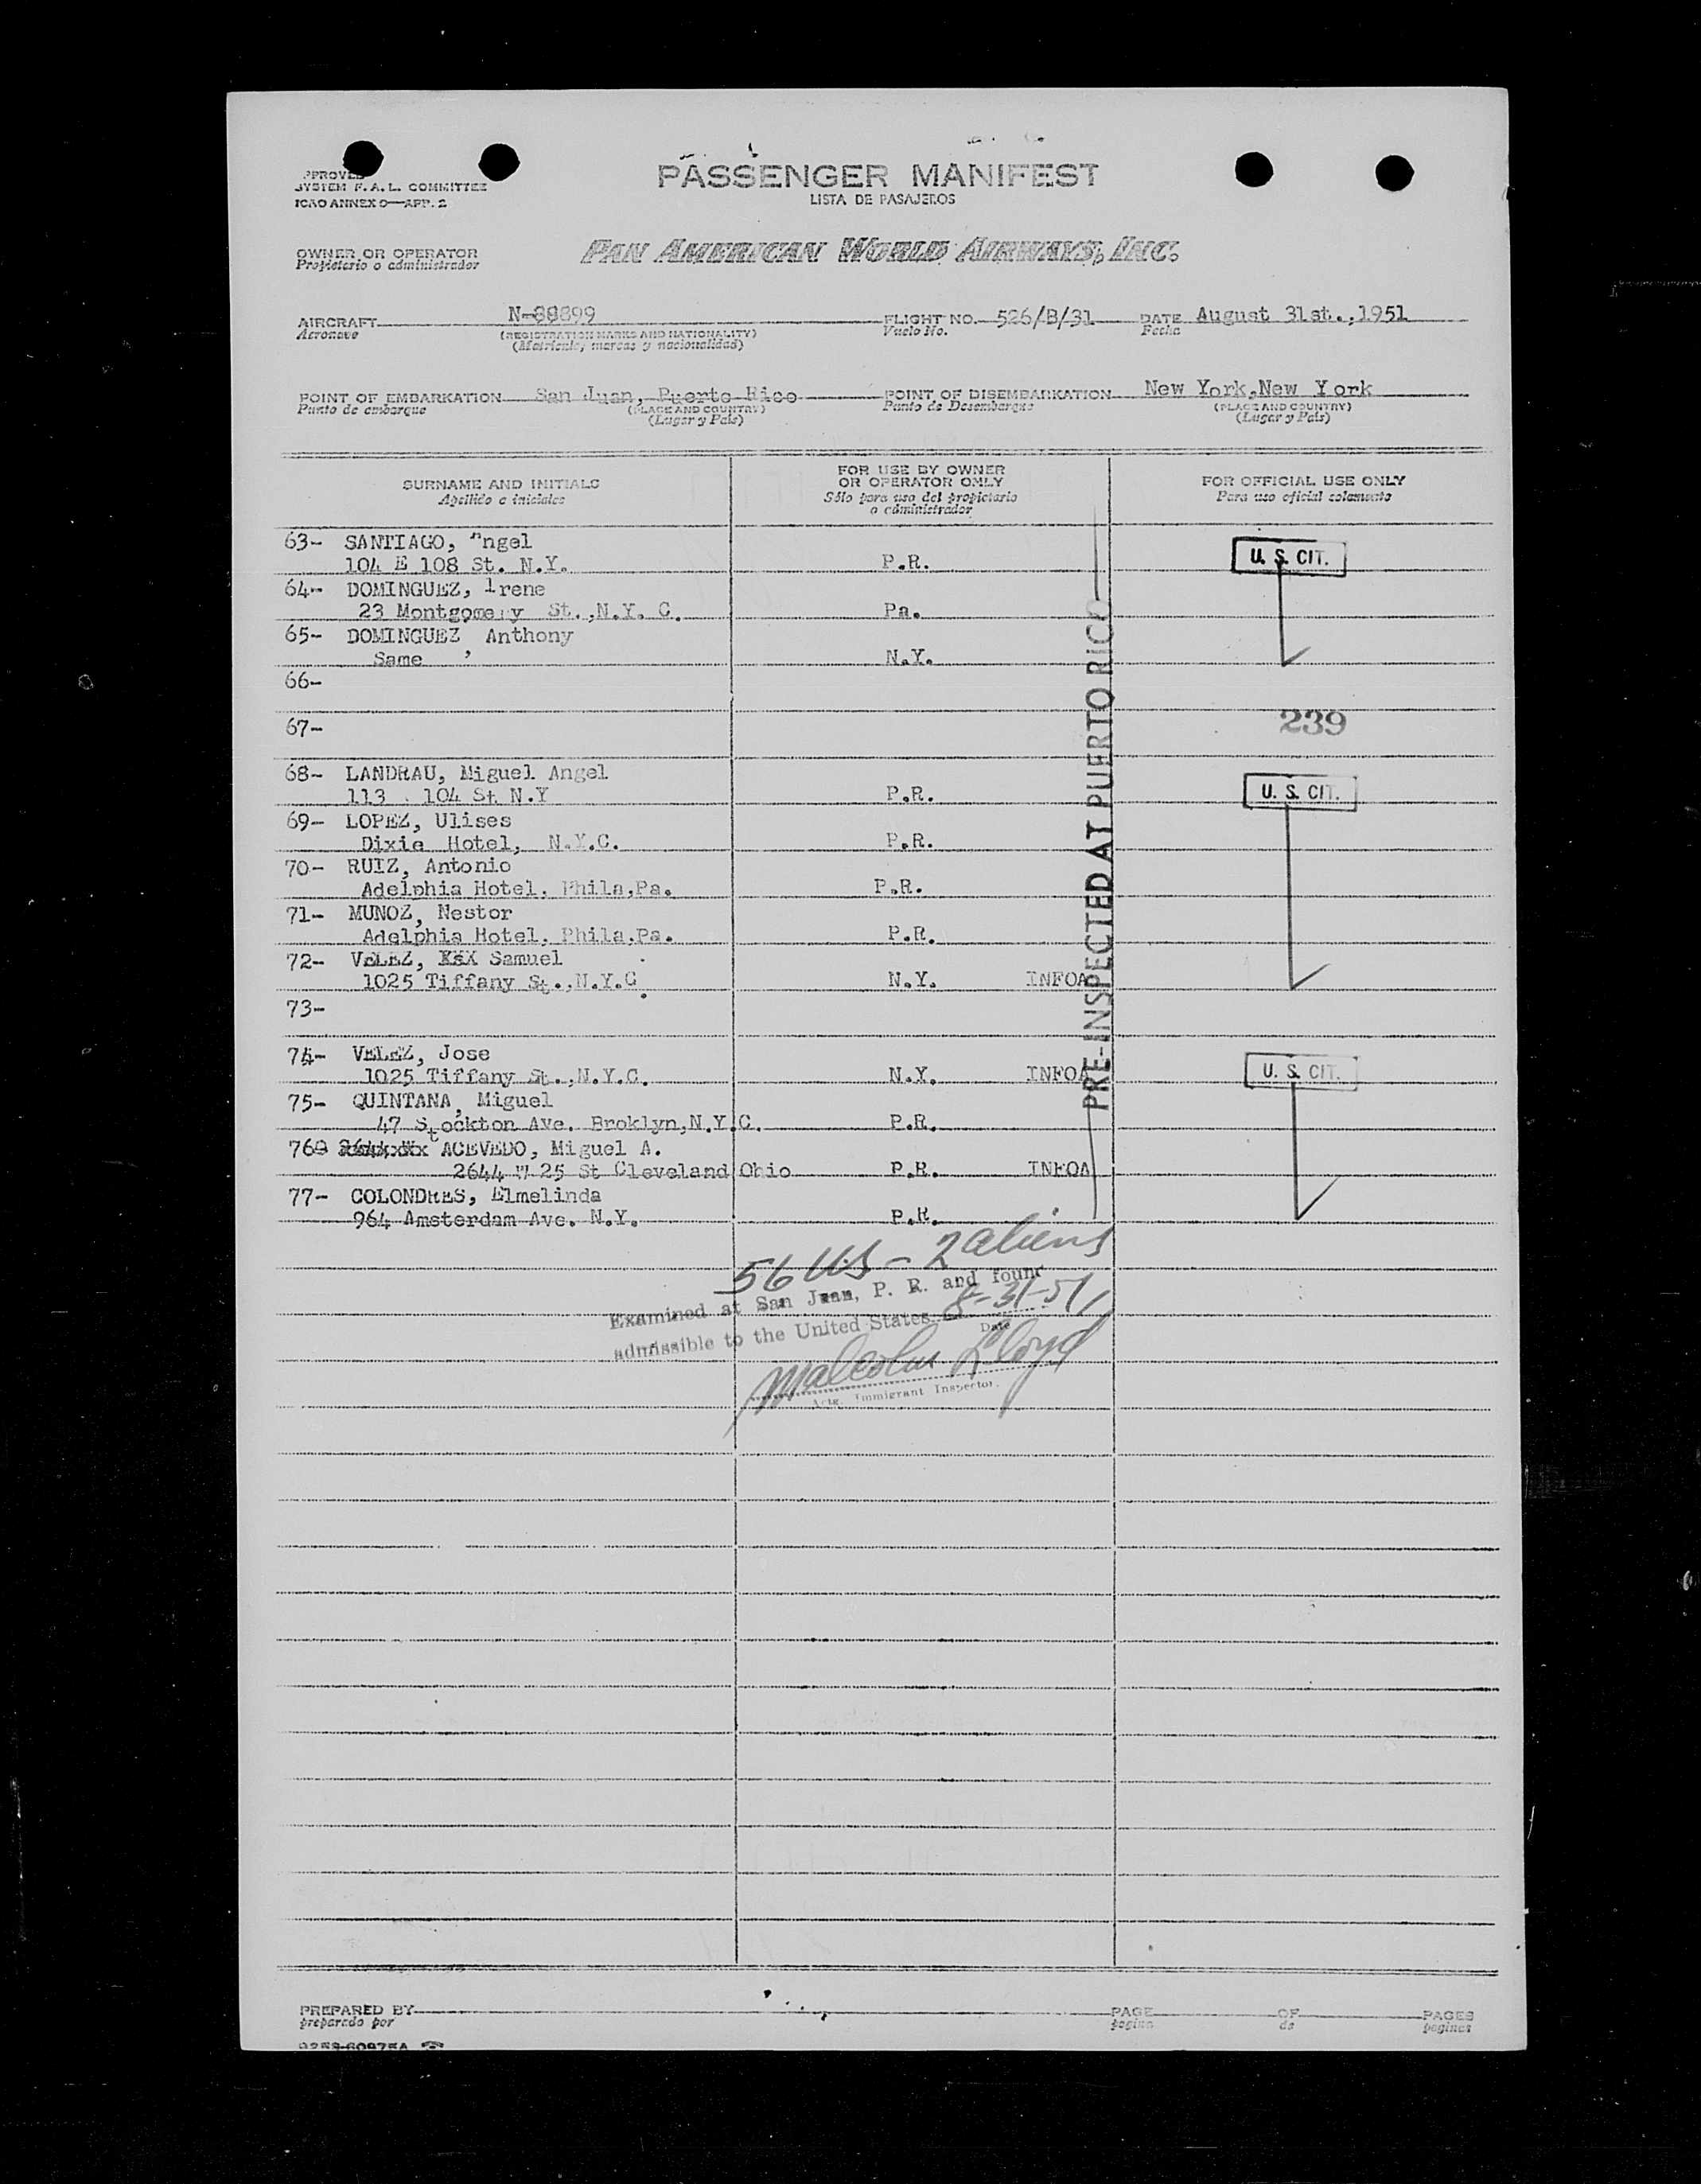 PASSENGER MANIFEST
LISTA DE PASAJEROS
SYSTEM F. A. L. COMMITTEE
ICAO ANNEX 9—APP. 2
OWNER OR OPERATOR
Propietario o administrador
PAN AMERICAN WORLD AIRWAYS, INC.
AIRCRAFT N-88899 FLIGHT NO. 526/B/31 DATE August 31st.,1951
Aeronave (REGISTRATION MARKS AND NATIONALITY) Vuelo No. Fecha
(Matricula, marcas y nacionalidad)
POINT OF EMBARKATION San Juan, Puerto Rico POINT OF DISEMBARKATION New York,New York
Punto de embarque (PLACE AND COUNTRY) Punto de Desembarque (PLACE AND COUNTRY)
(Lugar y País) (Lugar y País)
SURNAME AND INITIALS
Apellido e iniciales
FOR USE BY OWNER
OR OPERATOR ONLY
Sólo para uso del propietario
o administrador
FOR OFFICIAL USE ONLY
Para uso oficial solamente
63- SANTIAGO, Angel
104 E 108 St. N.Y. P.R. U. S. CIT.
64- DOMINGUEZ, Irene
23 Montgomery St.,N.Y. C. Pa.
65- DOMINGUEZ, Anthony
Same N.Y.
66-
67- 239
68- LANDRAU, Miguel Angel
113 104 St N.Y P.R. U. S. CIT.
69- LOPEZ, Ulises
Dixie Hotel, N.Y.C. P.R.
70- RUIZ, Antonio
Adelphia Hotel, Phila,Pa. P.R.
71- MUNOZ, Nestor
Adelphia Hotel, Phila,Pa. P.R.
72- VELEZ, Samuel
1025 Tiffany St.,N.Y.C. N.Y. INFOA
73-
74- VELEZ, Jose
1025 Tiffany St.,N.Y.C. N.Y. INFOA U. S. CIT.
75- QUINTANA, Miguel
47 Stockton Ave. Broklyn,N.Y.C. P.R.
76- ACEVEDO, Miguel A.
2644 W 25 St Cleveland Ohio P.R. INFOA
77- COLONDRES, Elmelinda
964 Amsterdam Ave. N.Y. P.R.
PRE-INSPECTED AT PUERTO RICO
56 US - 2 aliens
Examined at San Juan, P. R. and found
admissible to the United States 8-31-51
Date
Malcolm Lloyd
Actg. Immigrant Inspector.
PREPARED BY PAGE OF PAGES
preparado por pagina de paginas